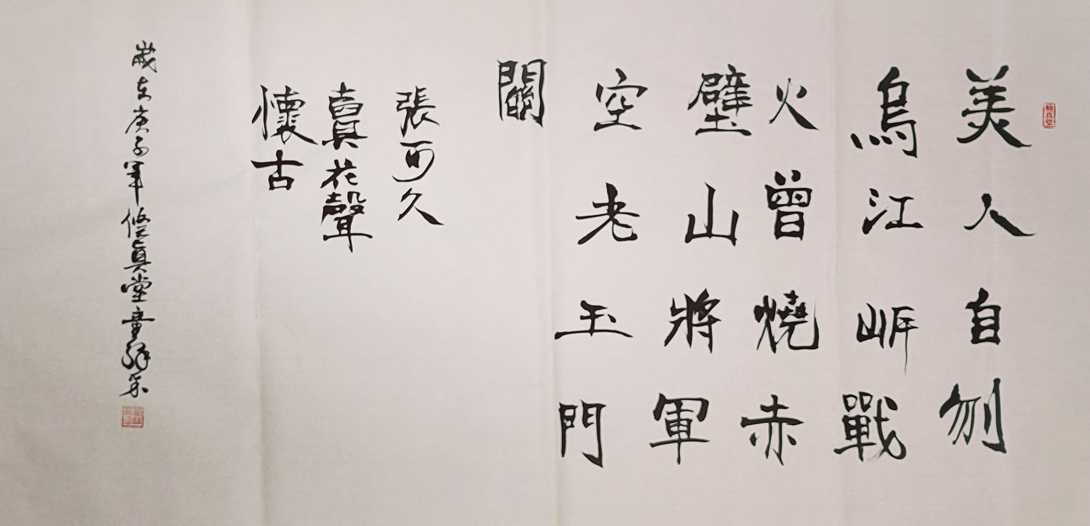 美人自刎
烏江岸戰
火曾燒赤
壁山將軍
空老玉門
關
張可久
賣花聲
懷古
歲在庚子年修真堂